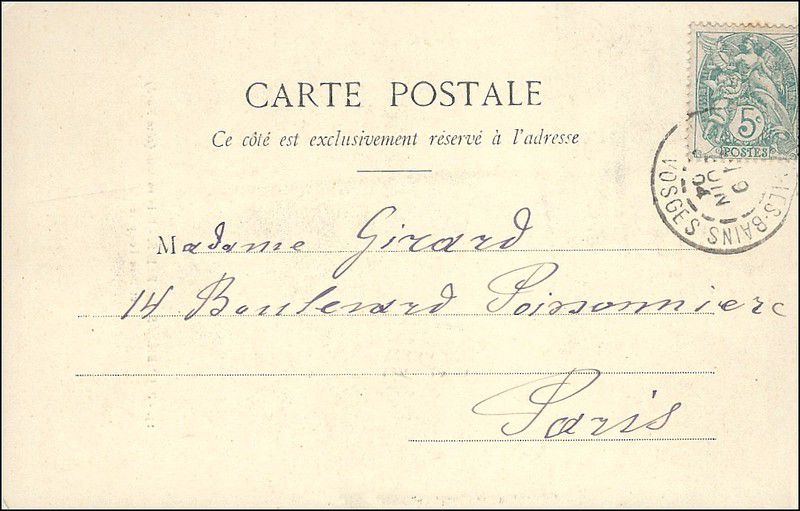 CARTE POSTALE
Ce côté est exclusivement réservé à l'adresse
5c
POSTES
VOSGES
BAINS
JUIN
04
Madame Girard
14 Boulevard Poissonniere
Paris